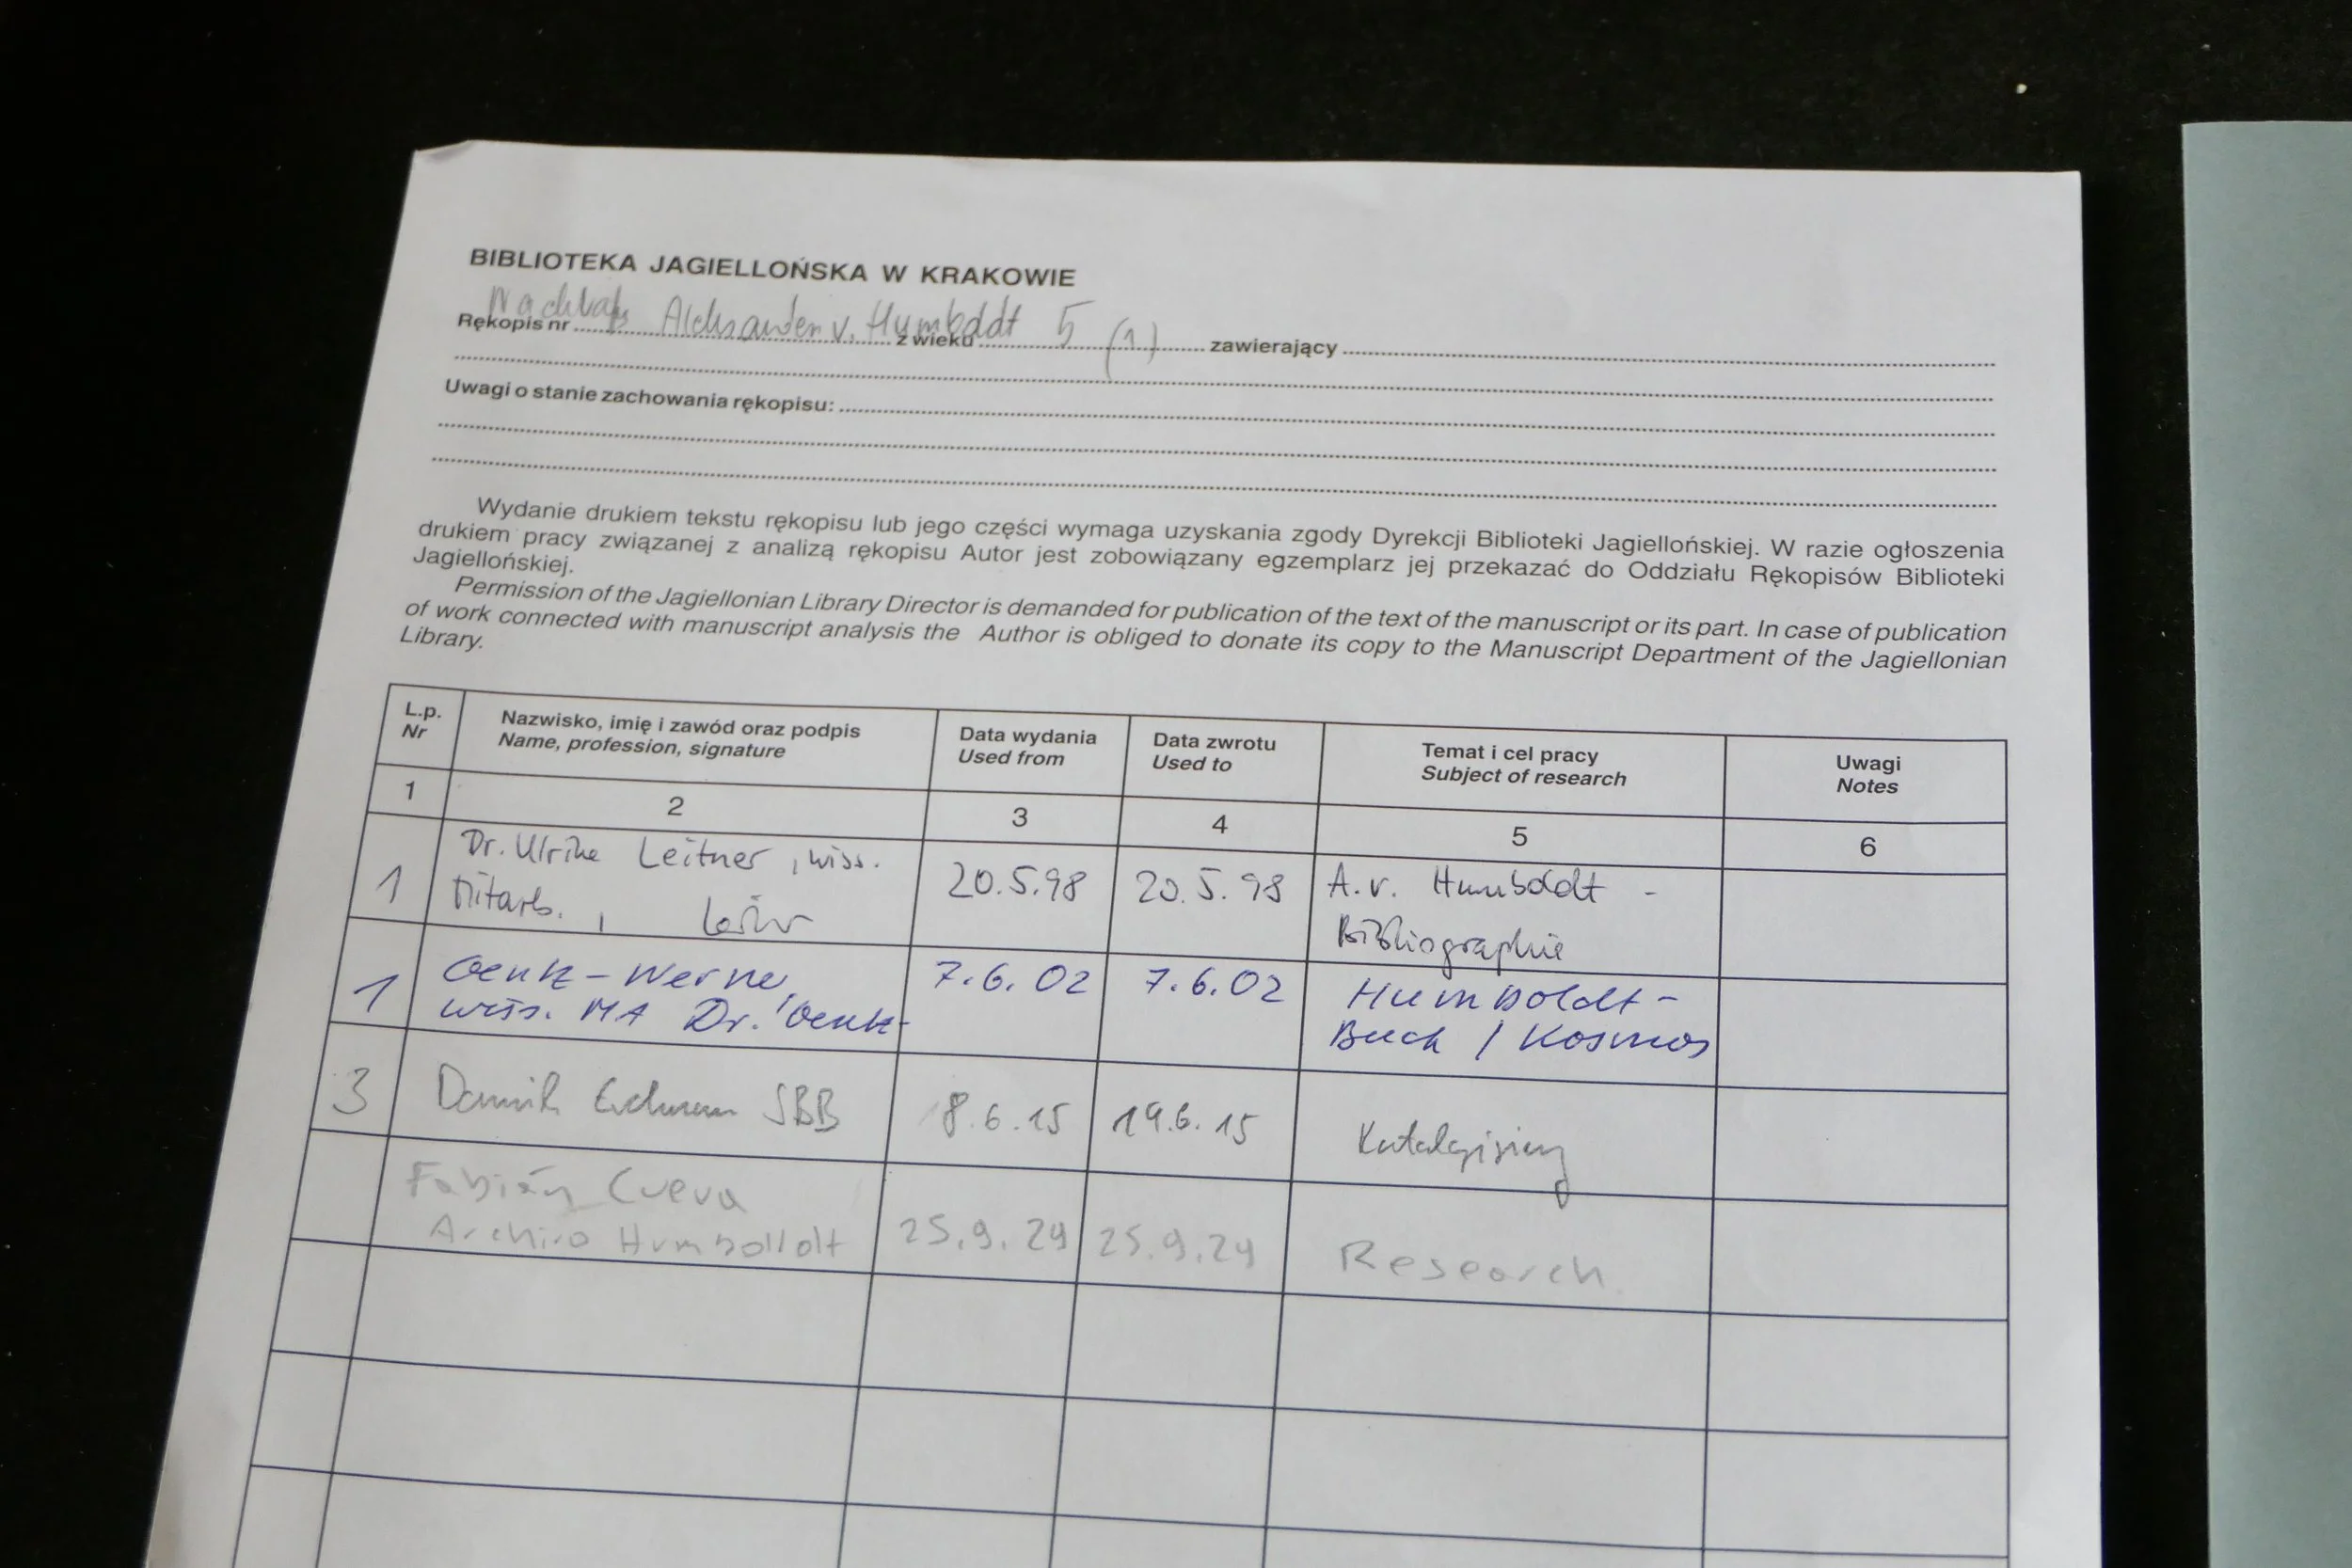 BIBLIOTEKA JAGIELLOŃSKA W KRAKOWIE
Rękopis nr Nachlaß Aleksander v. Humboldt z wieku 5 (1) zawierający
Uwagi o stanie zachowania rękopisu:
Wydanie drukiem tekstu rękopisu lub jego części wymaga uzyskania zgody Dyrekcji Biblioteki Jagiellońskiej. W razie ogłoszenia
drukiem pracy związanej z analizą rękopisu Autor jest zobowiązany egzemplarz jej przekazać do Oddziału Rękopisów Biblioteki
Jagiellońskiej.
Permission of the Jagiellonian Library Director is demanded for publication of the text of the manuscript or its part. In case of publication
of work connected with manuscript analysis the Author is obliged to donate its copy to the Manuscript Department of the Jagiellonian
Library.
L.p. Nazwisko, imię i zawód oraz podpis Data wydania Data zwrotu Temat i cel pracy Uwagi
Nr Name, profession, signature Used from Used to Subject of research Notes
1 2 3 4 5 6
Dr. Ulrike Leitner, wiss. 20.5.98 20.5.98 A.v. Humboldt -
1 Mitarb., Bibliographie
Werner, 7.6.02 7.6.02 Humboldt-
1 wiss. MA Dr. Buch / Kosmos
3 Dominik Erdmann SBB 8.6.15 19.6.15 Katalogisierung
Fabián Cueva
Archivo Humboldt 25.9.24 25.9.24 Research